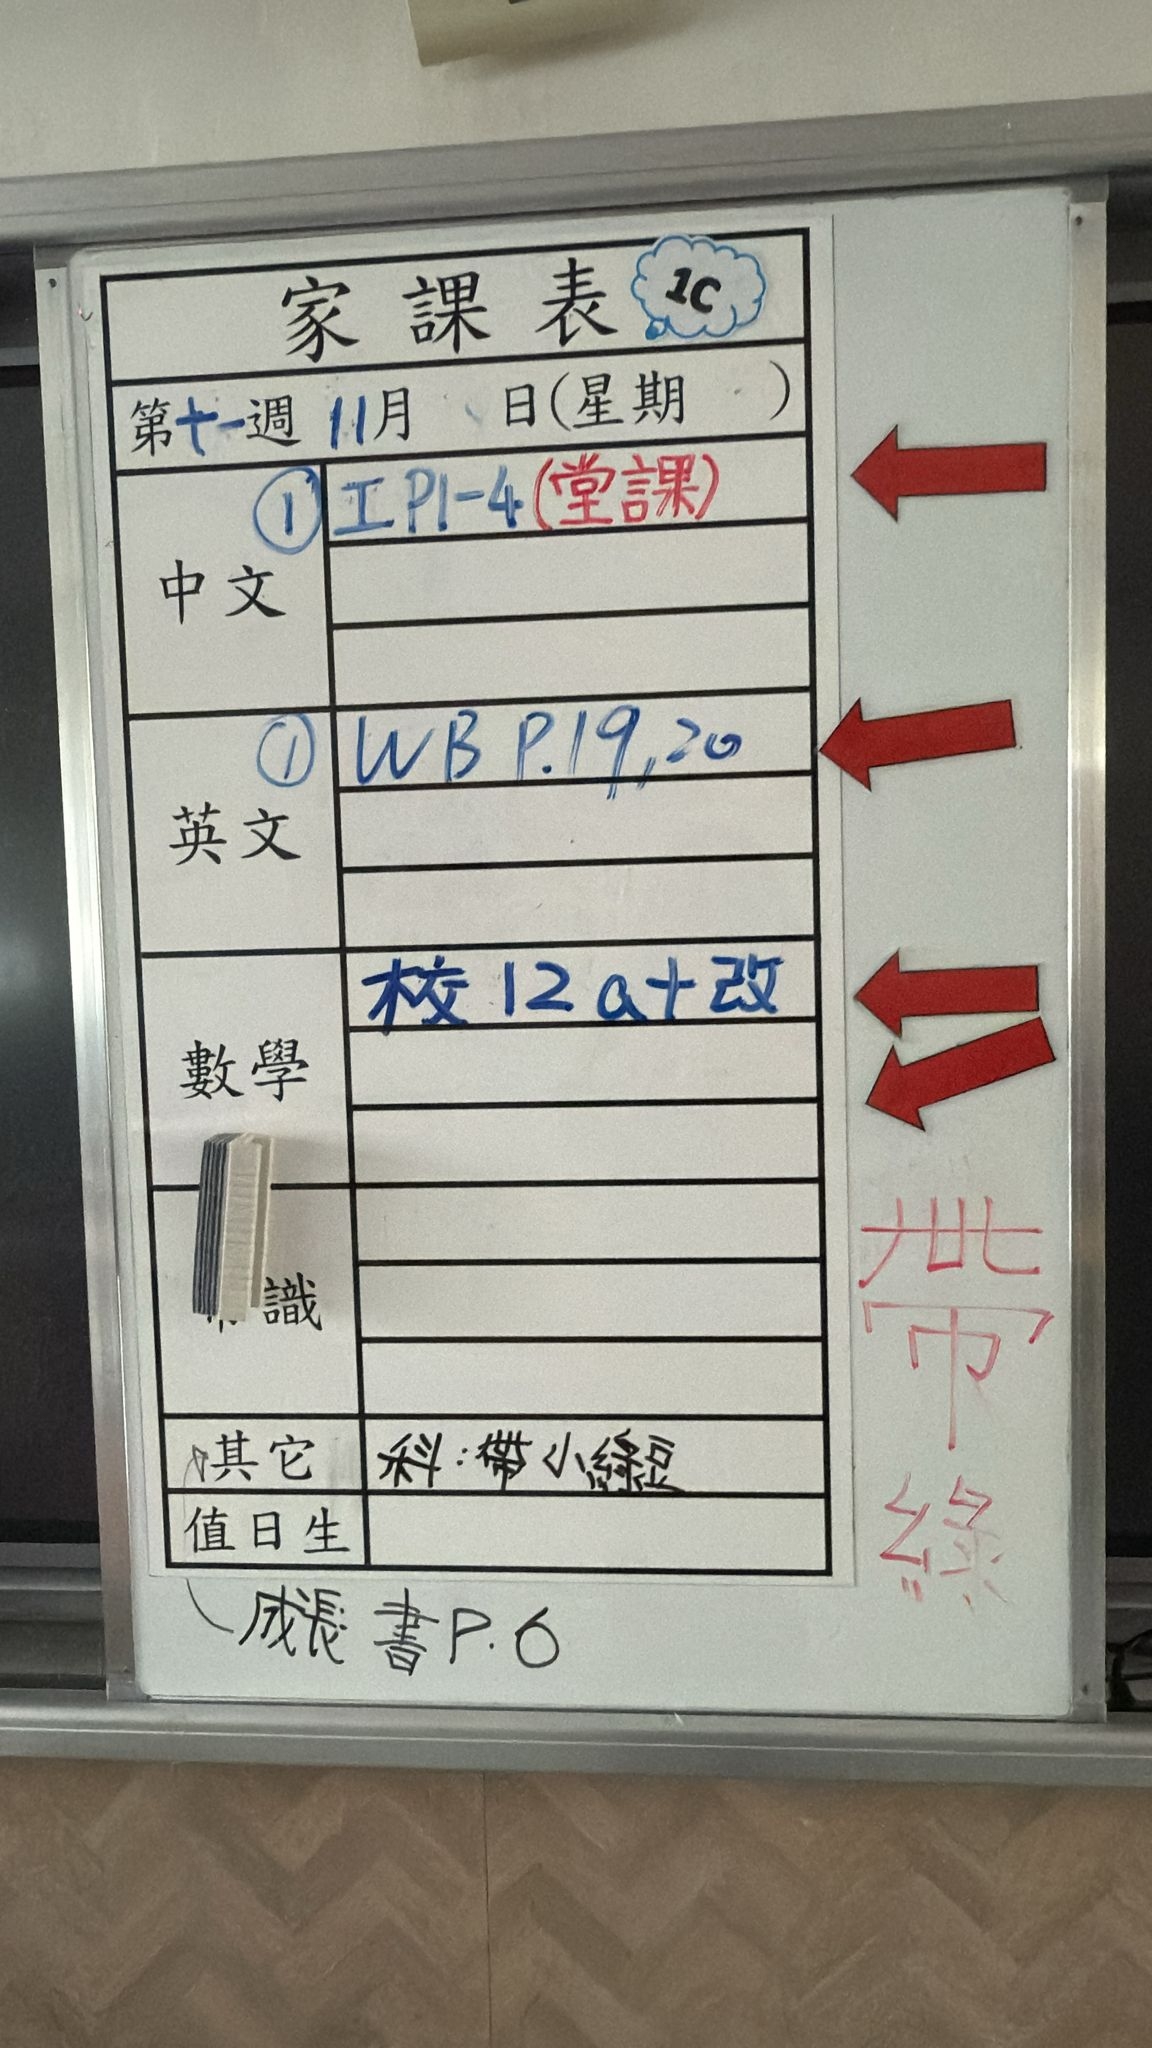 家課表 1C
第十一週 11月 日(星期 )
中文 ① 工P1-4(堂課)
英文 ① WB P.19,20
數學 校12a+改
識
其它 科:帶小綠豆
值日生
成長書P.6
帶
綠